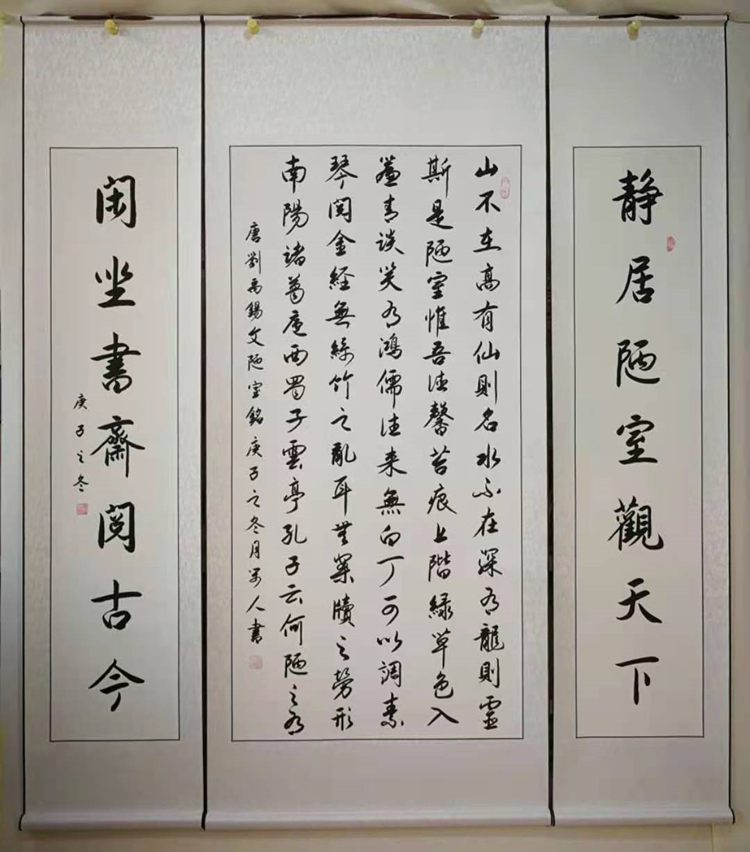 静居陋室觀天下
山不在高有仙則名水不在深有龍則靈
斯是陋室惟吾德馨苔痕上階緑草色入
簾青談笑有鴻儒往来無白丁可以調素
琴閲金経無絲竹之亂耳無案牘之勞形
南陽諸葛廬西蜀子雲亭孔子云何陋之有
唐劉禹錫文陋室銘庚子之冬月人書
閑坐書齋閲古今
庚子之冬